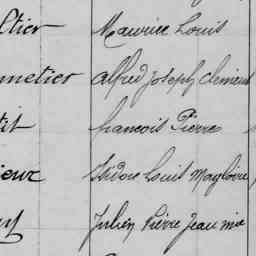 ltier Maurice Louis
metier Alfred Joseph Clément
tit François Pierre
ieux Isidore Louis Magloire
Julien Pierre Jean Mie